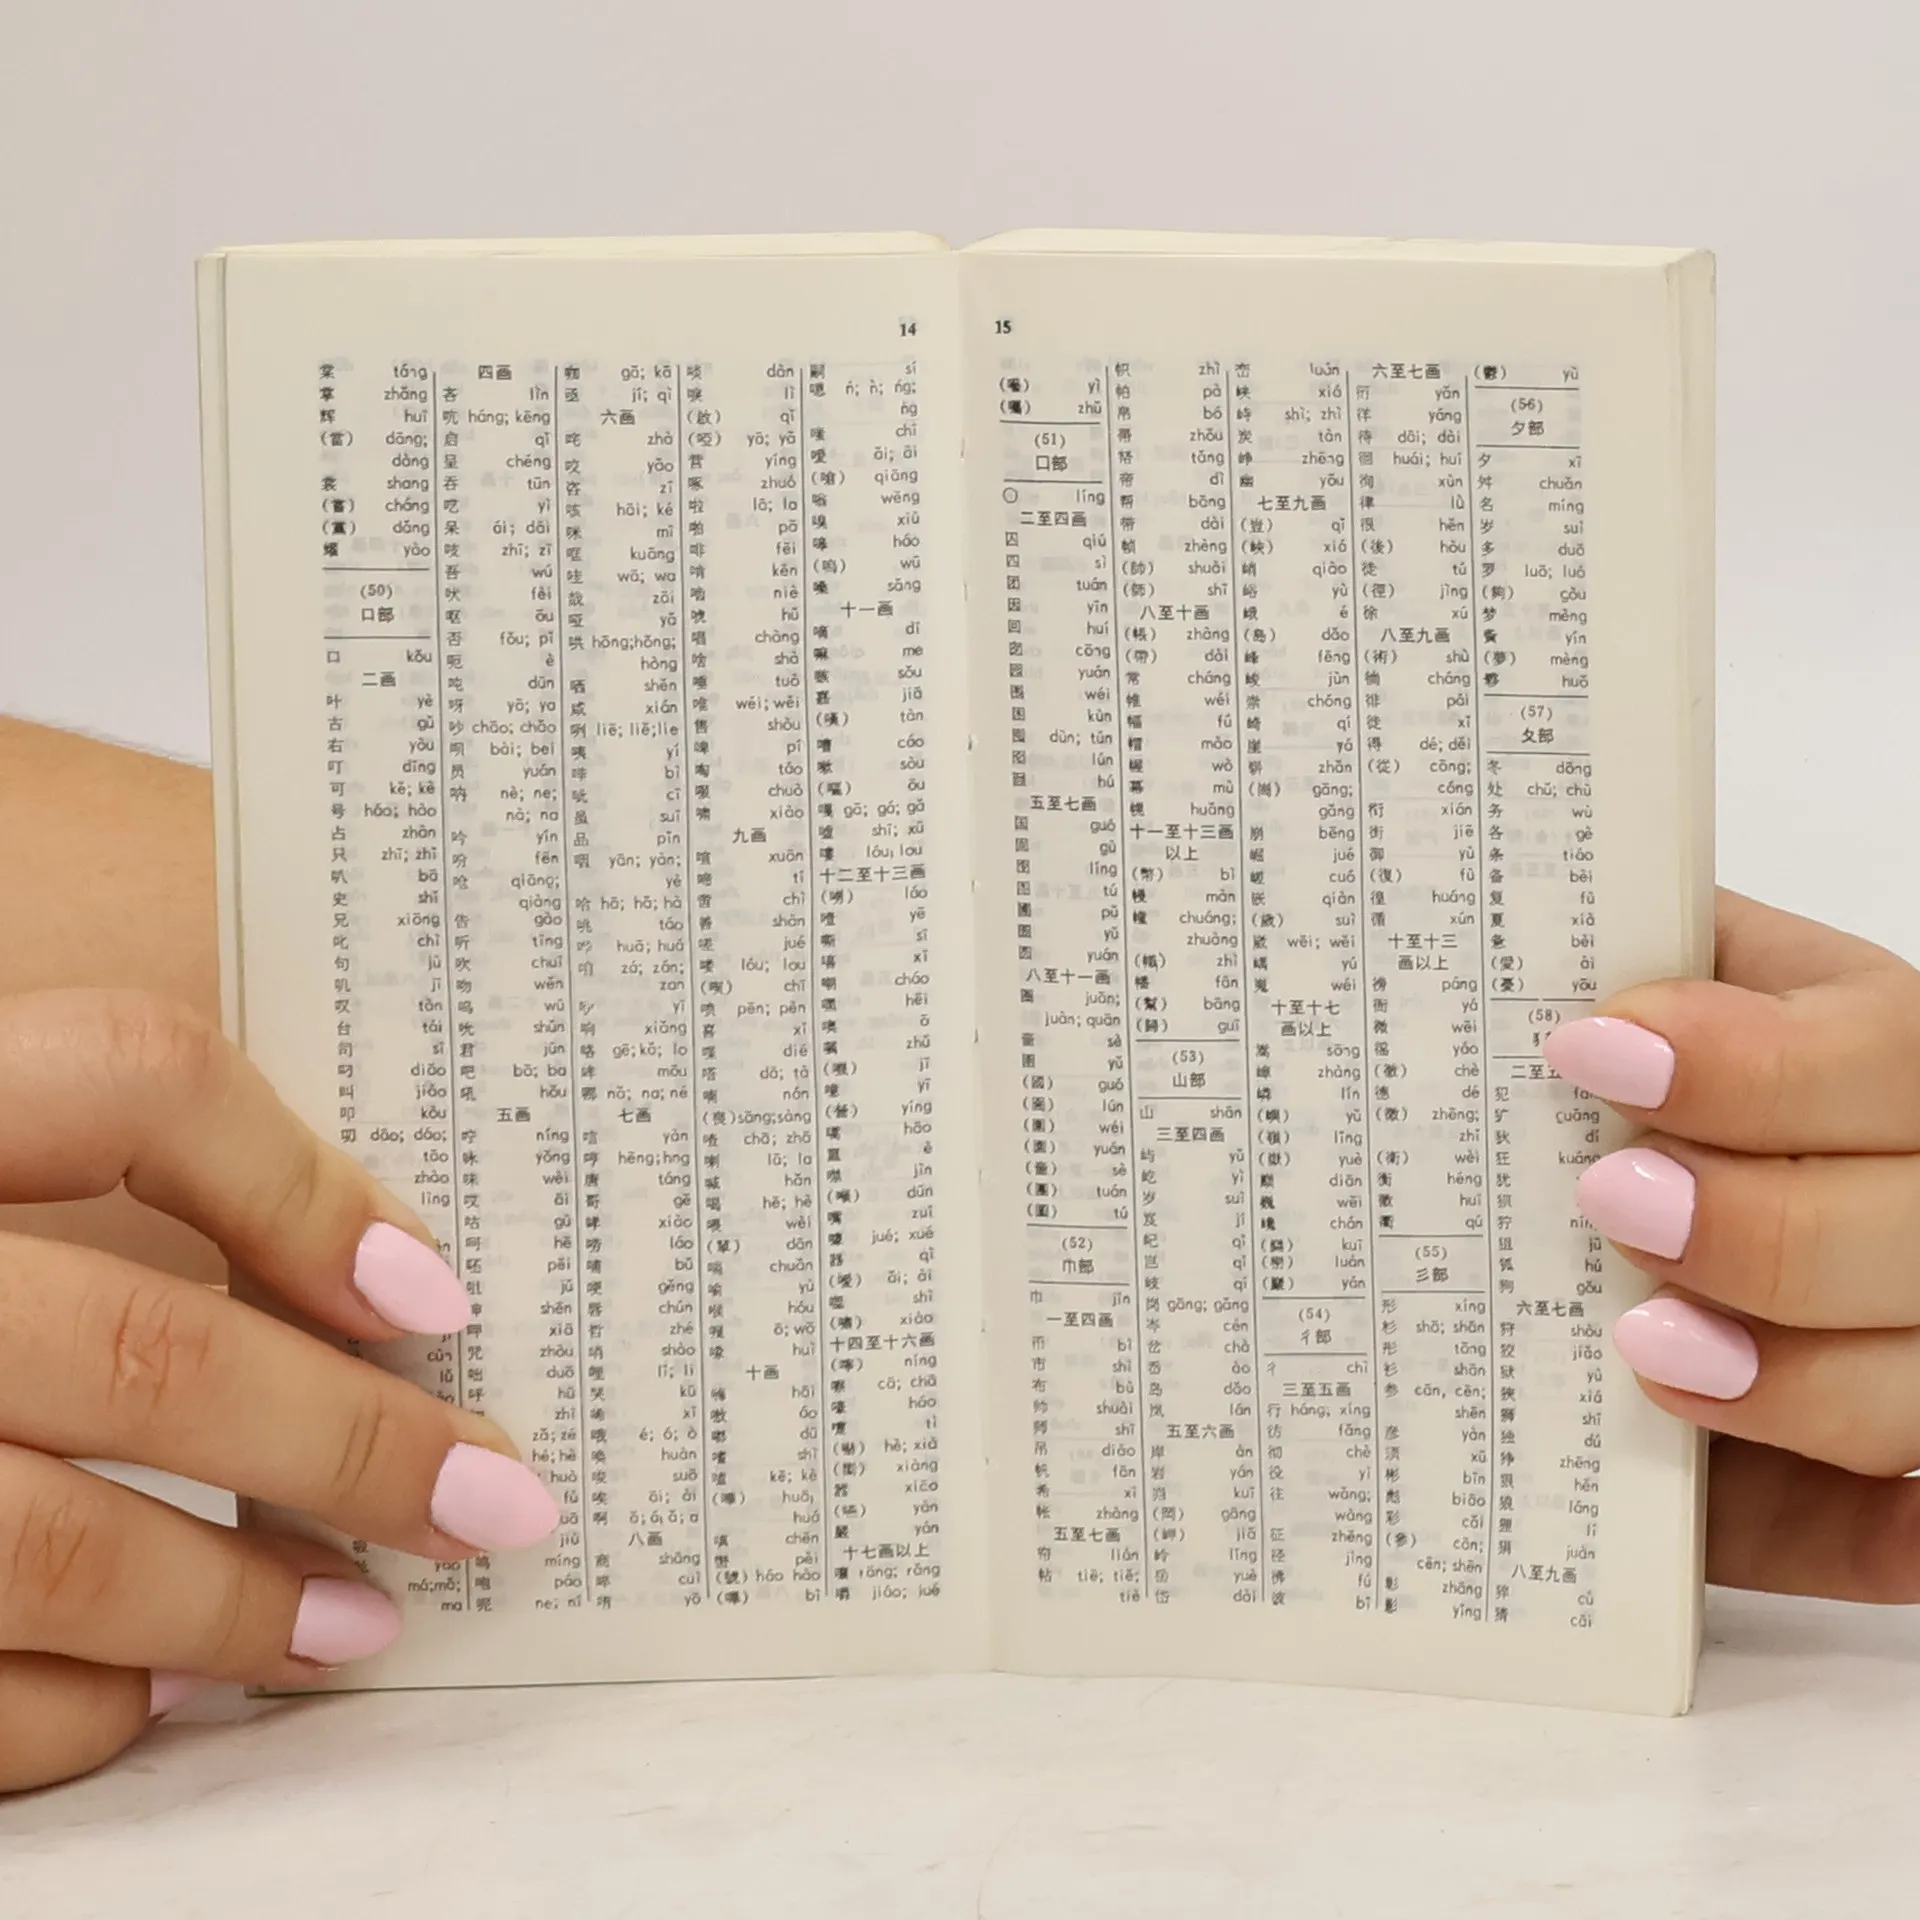 14
棠 táng
掌 zhǎng
辉 huī
(當) dāng;
dàng
裳 shang
(嘗) cháng
(黨) dǎng
耀 yào
(50)
口部
口 kǒu
二画
叶 yè
古 gǔ
右 yòu
叮 dīng
可 kě; kè
号 háo; hào
占 zhàn
只 zhī; zhǐ
叭 bā
史 shǐ
兄 xiōng
叱 chì
句 jù
叽 jī
叹 tàn
台 tái
司 sī
叼 diāo
叫 jiào
叩 kòu
叨 dāo; dáo;
tāo
zhào
lìng
má;mǎ;
ma
四画
吝 lìn
吭 háng; kēng
启 qǐ
呈 chéng
吞 tūn
呓 yì
呆 ái; dāi
吱 zhī; zī
吾 wú
吠 fèi
呕 ǒu
否 fǒu; pǐ
呃 è
吨 dūn
呀 yā; ya
吵 chāo; chǎo
呗 bài; bei
员 yuán
呐 nè; ne;
nà; na
吟 yín
吩 fēn
呛 qiāng;
qiàng
告 gào
听 tīng
吹 chuī
吻 wěn
呜 wū
吮 shǔn
君 jūn
吧 bā; ba
吼 hǒu
五画
咛 níng
咏 yǒng
味 wèi
哎 āi
咕 gū
呵 hē
呸 pēi
咀 jǔ
呻 shēn
呷 xiā
咒 zhòu
咄 duō
呼 hū
zhì
zǎ; zé
hé; hè
huò
fù
jiù
鸣 míng
咆 páo
呢 ne; ní
咖 gā; kā
亟 jí; qì
六画
咤 zhà
咬 yǎo
咨 zī
咳 hāi; ké
咪 mī
哐 kuāng
哇 wā; wa
哉 zāi
哑 yǎ
哄 hōng;hǒng;
hòng
哂 shěn
咸 xián
咧 liē; liě;lie
咦 yí
哔 bì
呲 cī
虽 suī
品 pǐn
咽 yān; yàn;
yè
哈 hā; hǎ; hà
咷 táo
哗 huā; huá
咱 zá; zán;
zan
咿 yī
响 xiǎng
咯 gē;kǎ; lo
哞 mōu
哪 nǎ; na;né
七画
唁 yàn
哼 hēng;hng
唐 táng
哥 gē
哮 xiào
唠 láo
哺 bǔ
哽 gěng
唇 chún
哲 zhé
哨 shào
哩 lī; li
哭 kū
唏 xī
哦 é; ó; ò
唤 huàn
唆 suō
唉 āi; ài
啊 ā; á; ǎ; a
八画
商 shāng
啐 cuì
唷 yō
啖 dàn
唳 lì
(啟) qǐ
(啞) yā; yǎ
营 yíng
啄 zhuó
啦 lā; la
啪 pā
啡 fēi
啃 kěn
啮 niè
唬 hǔ
唱 chàng
啥 shà
唾 tuò
唯 wéi; wěi
售 shòu
啤 pí
啕 táo
啜 chuò
啸 xiào
九画
喧 xuān
啼 tí
啻 chì
善 shàn
噘 jué
喽 lóu; lou
(喫) chī
喷 pēn; pèn
喜 xǐ
喋 dié
嗒 dā; tà
喃 nán
(喪)sāng;sàng
喳 chā; zhā
喇 lā; la
喊 hǎn
喝 hē; hè
喂 wèi
(單) dān
喘 chuǎn
喻 yù
喉 hóu
喔 ō; wō
喙 huì
十画
嗨 hāi
嗷 áo
嘟 dū
嗜 shì
嗑 kē; kè
(嘩) huā;
huá
嗔 chēn
嗣 sì
嗯 ń; ň; ńg;
ňg
嗤 chī
嗳 ǎi; ài
(嗆) qiāng
嗡 wēng
嗅 xiù
嗥 háo
(嗚) wū
嗓 sǎng
十一画
嘀 dí
嘛 me
嗾 sǒu
嘉 jiā
(嘆) tàn
嘈 cáo
嗽 sòu
(嘔) ǒu
嘎 gā; gá; gǎ
嘘 shī; xū
嘍 lóu; lou
十二至十三画
(嘮) láo
噎 yē
嘶 sī
嘻 xī
嘲 cháo
嘿 hēi
噢 ō
嘱 zhǔ
(嘰) jī
噫 yī
(營) yíng
嚆 hāo
噩 è
噤 jìn
(噸) dūn
嘴 zuǐ
噱 jué; xué
器 qì
(噯) ǎi; ài
噬 shì
(嘯) xiào
十四至十六画
(嚀) níng
嚓 cā; chā
嚎 háo
嚏 tì
(嚇) hè; xià
(嚮) xiàng
嚣 xiāo
(嚥) yàn
嚴 yán
十七画以上
嚷 rāng; rǎng
嚼 jiáo; jué
15
(囈) yì
(囑) zhǔ
(51)
囗部
〇 líng
二至四画
囚 qiú
四 sì
团 tuán
因 yīn
回 huí
囱 cōng
园 yuán
围 wéi
困 kùn
囤 dùn; tún
囵 lún
囫 hú
五至七画
国 guó
固 gù
囹 líng
图 tú
圃 pǔ
圄 yǔ
圆 yuán
八至十一画
圈 juān;
juàn; quān
啬 sè
圉 yǔ
(國) guó
(圇) lún
(圍) wéi
(園) yuán
(嗇) sè
(團) tuán
(圖) tú
(52)
巾部
巾 jīn
一至四画
币 bì
市 shì
布 bù
帅 shuài
师 shī
吊 diào
帆 fān
希 xī
帐 zhàng
五至七画
帘 lián
帖 tiē; tiě;
tiè
帜 zhì
帕 pà
帛 bó
帚 zhǒu
帑 tǎng
帝 dì
帮 bāng
带 dài
帧 zhèng
(帥) shuài
(師) shī
八至十画
(帳) zhàng
(帶) dài
常 cháng
帷 wéi
幅 fú
帽 mào
幄 wò
幕 mù
幌 huǎng
十一至十三画
以上
(幣) bì
幔 màn
幢 chuáng;
zhuàng
(幟) zhì
幡 fān
(幫) bāng
(歸) guī
(53)
山部
山 shān
三至四画
屿 yǔ
屹 yì
岁 suì
岌 jí
屺 qǐ
岂 qǐ
岐 qí
岗 gāng; gǎng
岑 cén
岔 chà
岙 ào
岛 dǎo
岚 lán
五至六画
岸 àn
岩 yán
岿 kuī
(岡) gāng
(岬) jiǎ
岭 lǐng
岳 yuè
岱 dài
峦 luán
峡 xiá
峙 shì; zhì
炭 tàn
峥 zhēng
幽 yōu
七至九画
(豈) qǐ
(峽) xiá
峭 qiào
峪 yù
峨 é
(島) dǎo
峰 fēng
峻 jùn
崇 chóng
崎 qí
崖 yá
崭 zhǎn
(崗) gāng;
gǎng
崩 bēng
崛 jué
嵯 cuó
嵌 qiàn
(歲) suì
崴 wēi; wěi
嵎 yú
嵬 wéi
十至十七
画以上
嵩 sōng
嶂 zhàng
嶙 lín
(嶼) yǔ
(嶺) lǐng
(嶽) yuè
巅 diān
巍 wēi
巉 chán
(巋) kuī
(巒) luán
(巖) yán
(54)
彳部
彳 chì
三至五画
行 háng; xíng
彷 fǎng
彻 chè
役 yì
往 wǎng;
wàng
征 zhēng
径 jìng
彿 fú
彼 bǐ
六至七画
衍 yǎn
徉 yáng
待 dāi; dài
徊 huái; huí
徇 xùn
律 lǜ
很 hěn
(後) hòu
徒 tú
(徑) jìng
徐 xú
八至九画
(術) shù
徜 cháng
徘 pái
徙 xǐ
得 dé; děi
(從) cōng;
cóng
衔 xián
街 jiē
御 yù
(復) fù
徨 huáng
循 xún
十至十三
画以上
徬 páng
衙 yá
微 wēi
徭 yáo
(徹) chè
德 dé
(徵) zhēng;
zhǐ
(衛) wèi
衡 héng
徽 huī
衢 qú
(55)
彡部
形 xíng
衫 shā; shān
彤 tóng
杉 shān
参 cān, cēn;
shēn
彦 yàn
须 xū
彬 bīn
彪 biāo
彩 cǎi
(參) cān;
cēn; shēn
彰 zhāng
影 yǐng
(鬱) yù
(56)
夕部
夕 xī
舛 chuǎn
名 míng
岁 suì
多 duō
罗 luō; luó
(夠) gòu
梦 mèng
夤 yín
(夢) mèng
夥 huǒ
(57)
夂部
冬 dōng
处 chǔ; chù
务 wù
各 gè
条 tiáo
备 bèi
复 fù
夏 xià
惫 bèi
(愛) ài
(憂) yōu
(58)
二至五
犯
犷 guǎng
狄 dí
狂 kuáng
犹
狈
狞
狙 jū
狐 hú
狗 gǒu
六至七画
狩 shòu
狡 jiǎo
狱 yù
狭 xiá
狮 shī
独 dú
狰 zhēng
狠 hěn
狼 láng
狸 lí
狷 juàn
八至九画
猝 cù
猜 cāi